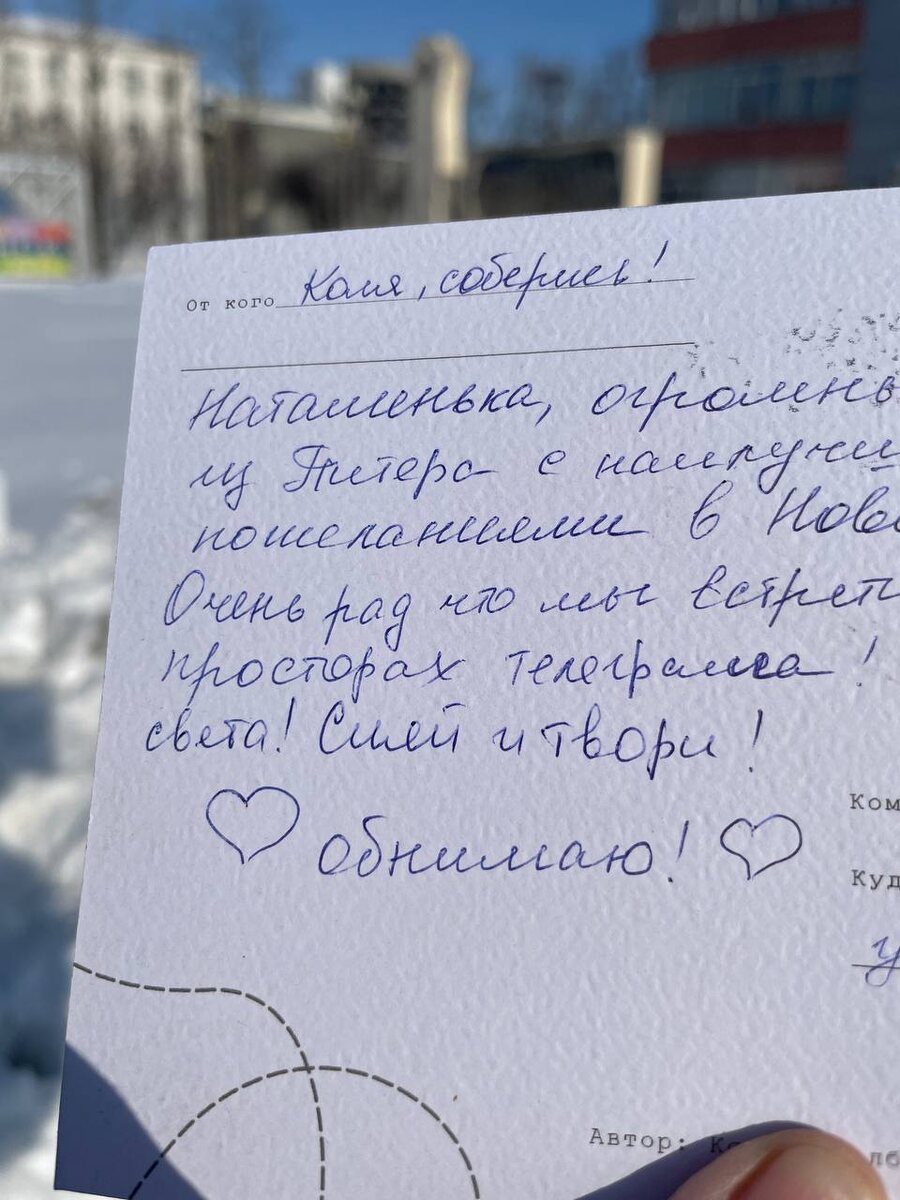 От кого Коля, соберись!
Наташенька, огромны
из Питера с наилучш
пожеланиями в Ново
Очень рад что мы встрети
просторах телеграмма!
света! Сияй и твори!
обнимаю!
Ком
Куд
у
Автор: Ко
лб